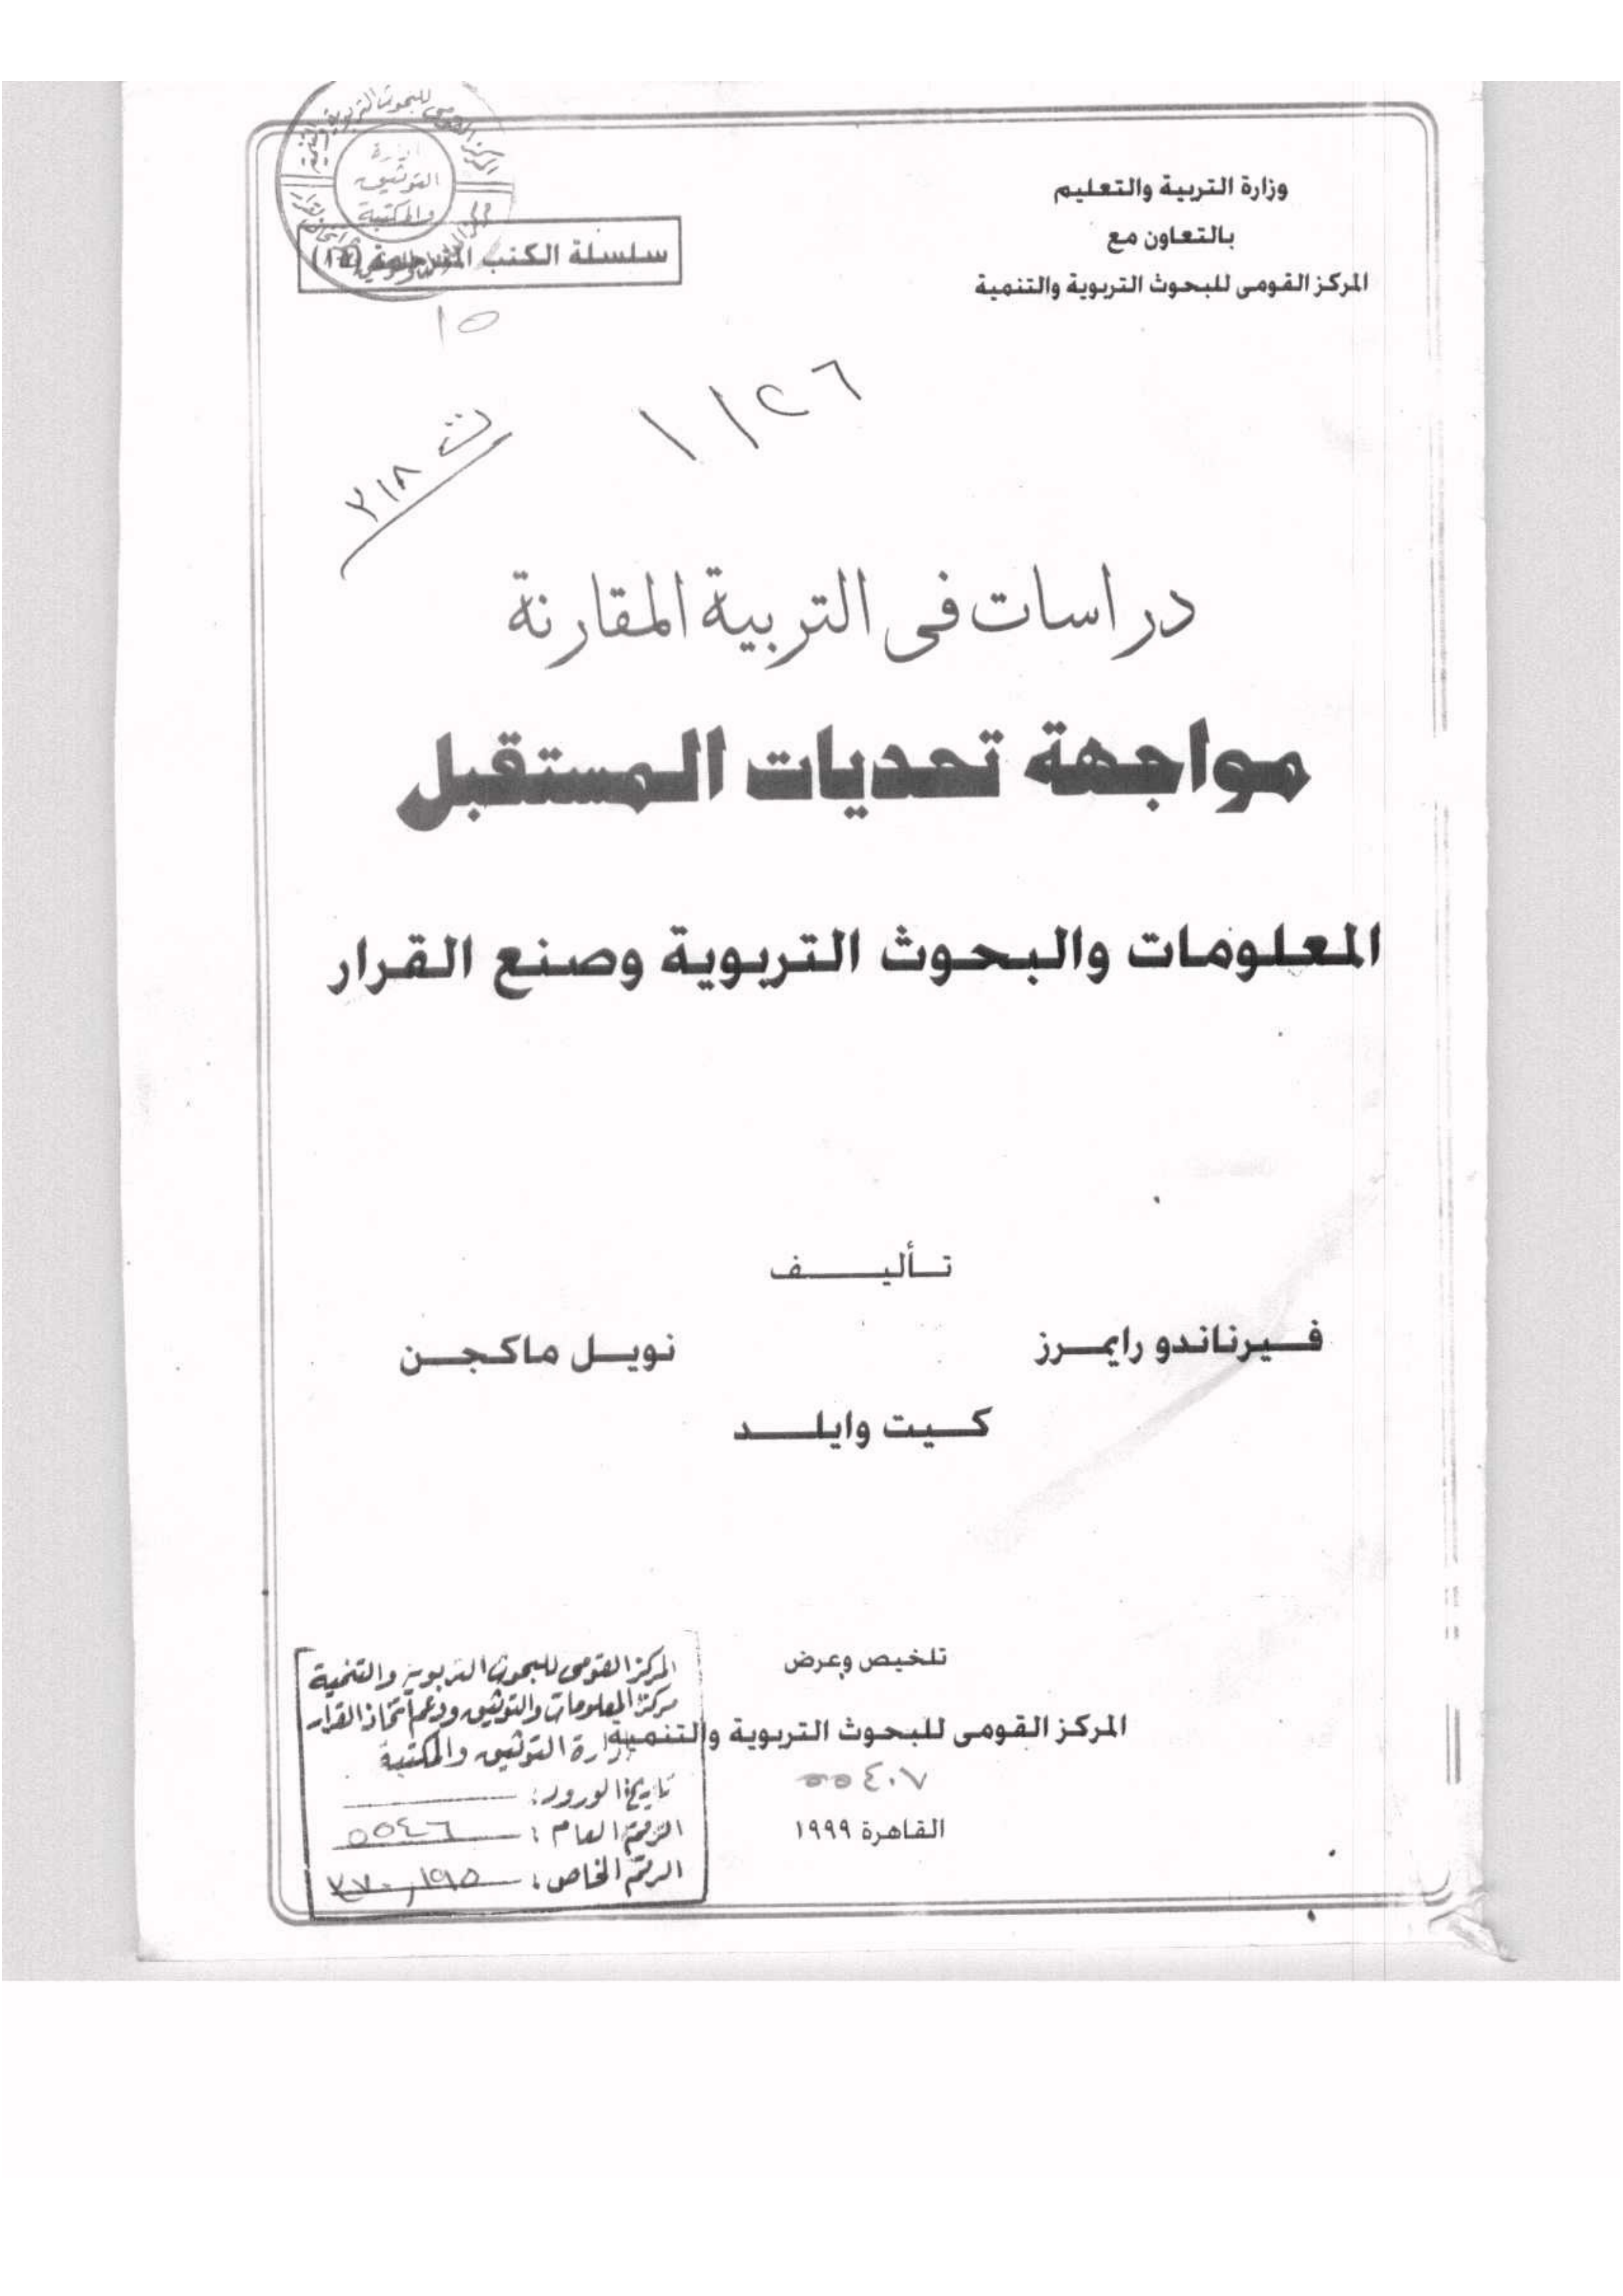 وزارة التربية والتعليم
بالتعاون مع
المركز القومى للبحوث التربوية والتنمية
سلسلة الكتب المترجمة
التوثيق
والمكتبة
١٥
١١٢٦
ت ٧١٨
دراسات فى التربية المقارنة
مواجهة تحديات المستقبل
المعلومات والبحوث التربوية وصنع القرار
تأليف
فيرناندو رايمرز
نويل ماكجن
كيت وايلد
تلخيص وعرض
المركز القومى للبحوث التربوية والتنمية
٥٥٤٠٧
القاهرة ١٩٩٩
المركز القومى للبحوث التربوية والتنمية
مركز المعلومات والتوثيق ودعم اتخاذ القرار
إدارة التوثيق والمكتبة
تاريخ الورود:
الرقم العام : ٥٥٤٦
الرقم الخاص :